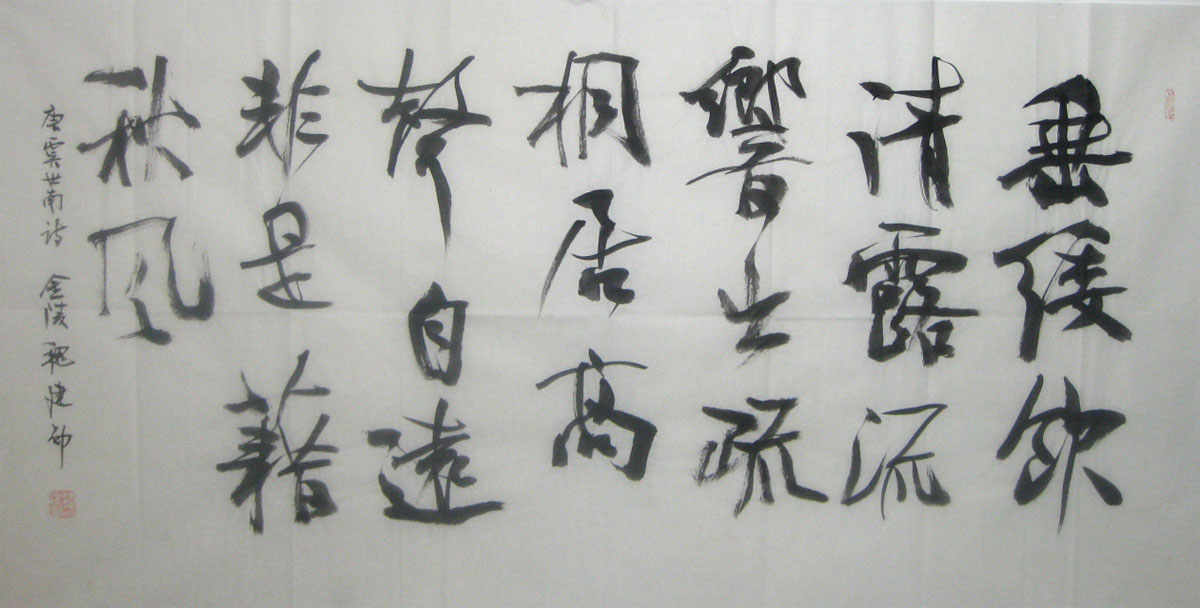 垂緌飲
清露流
響出疏
桐居高
聲自遠
非是藉
秋風
唐虞世南诗 金陵魏